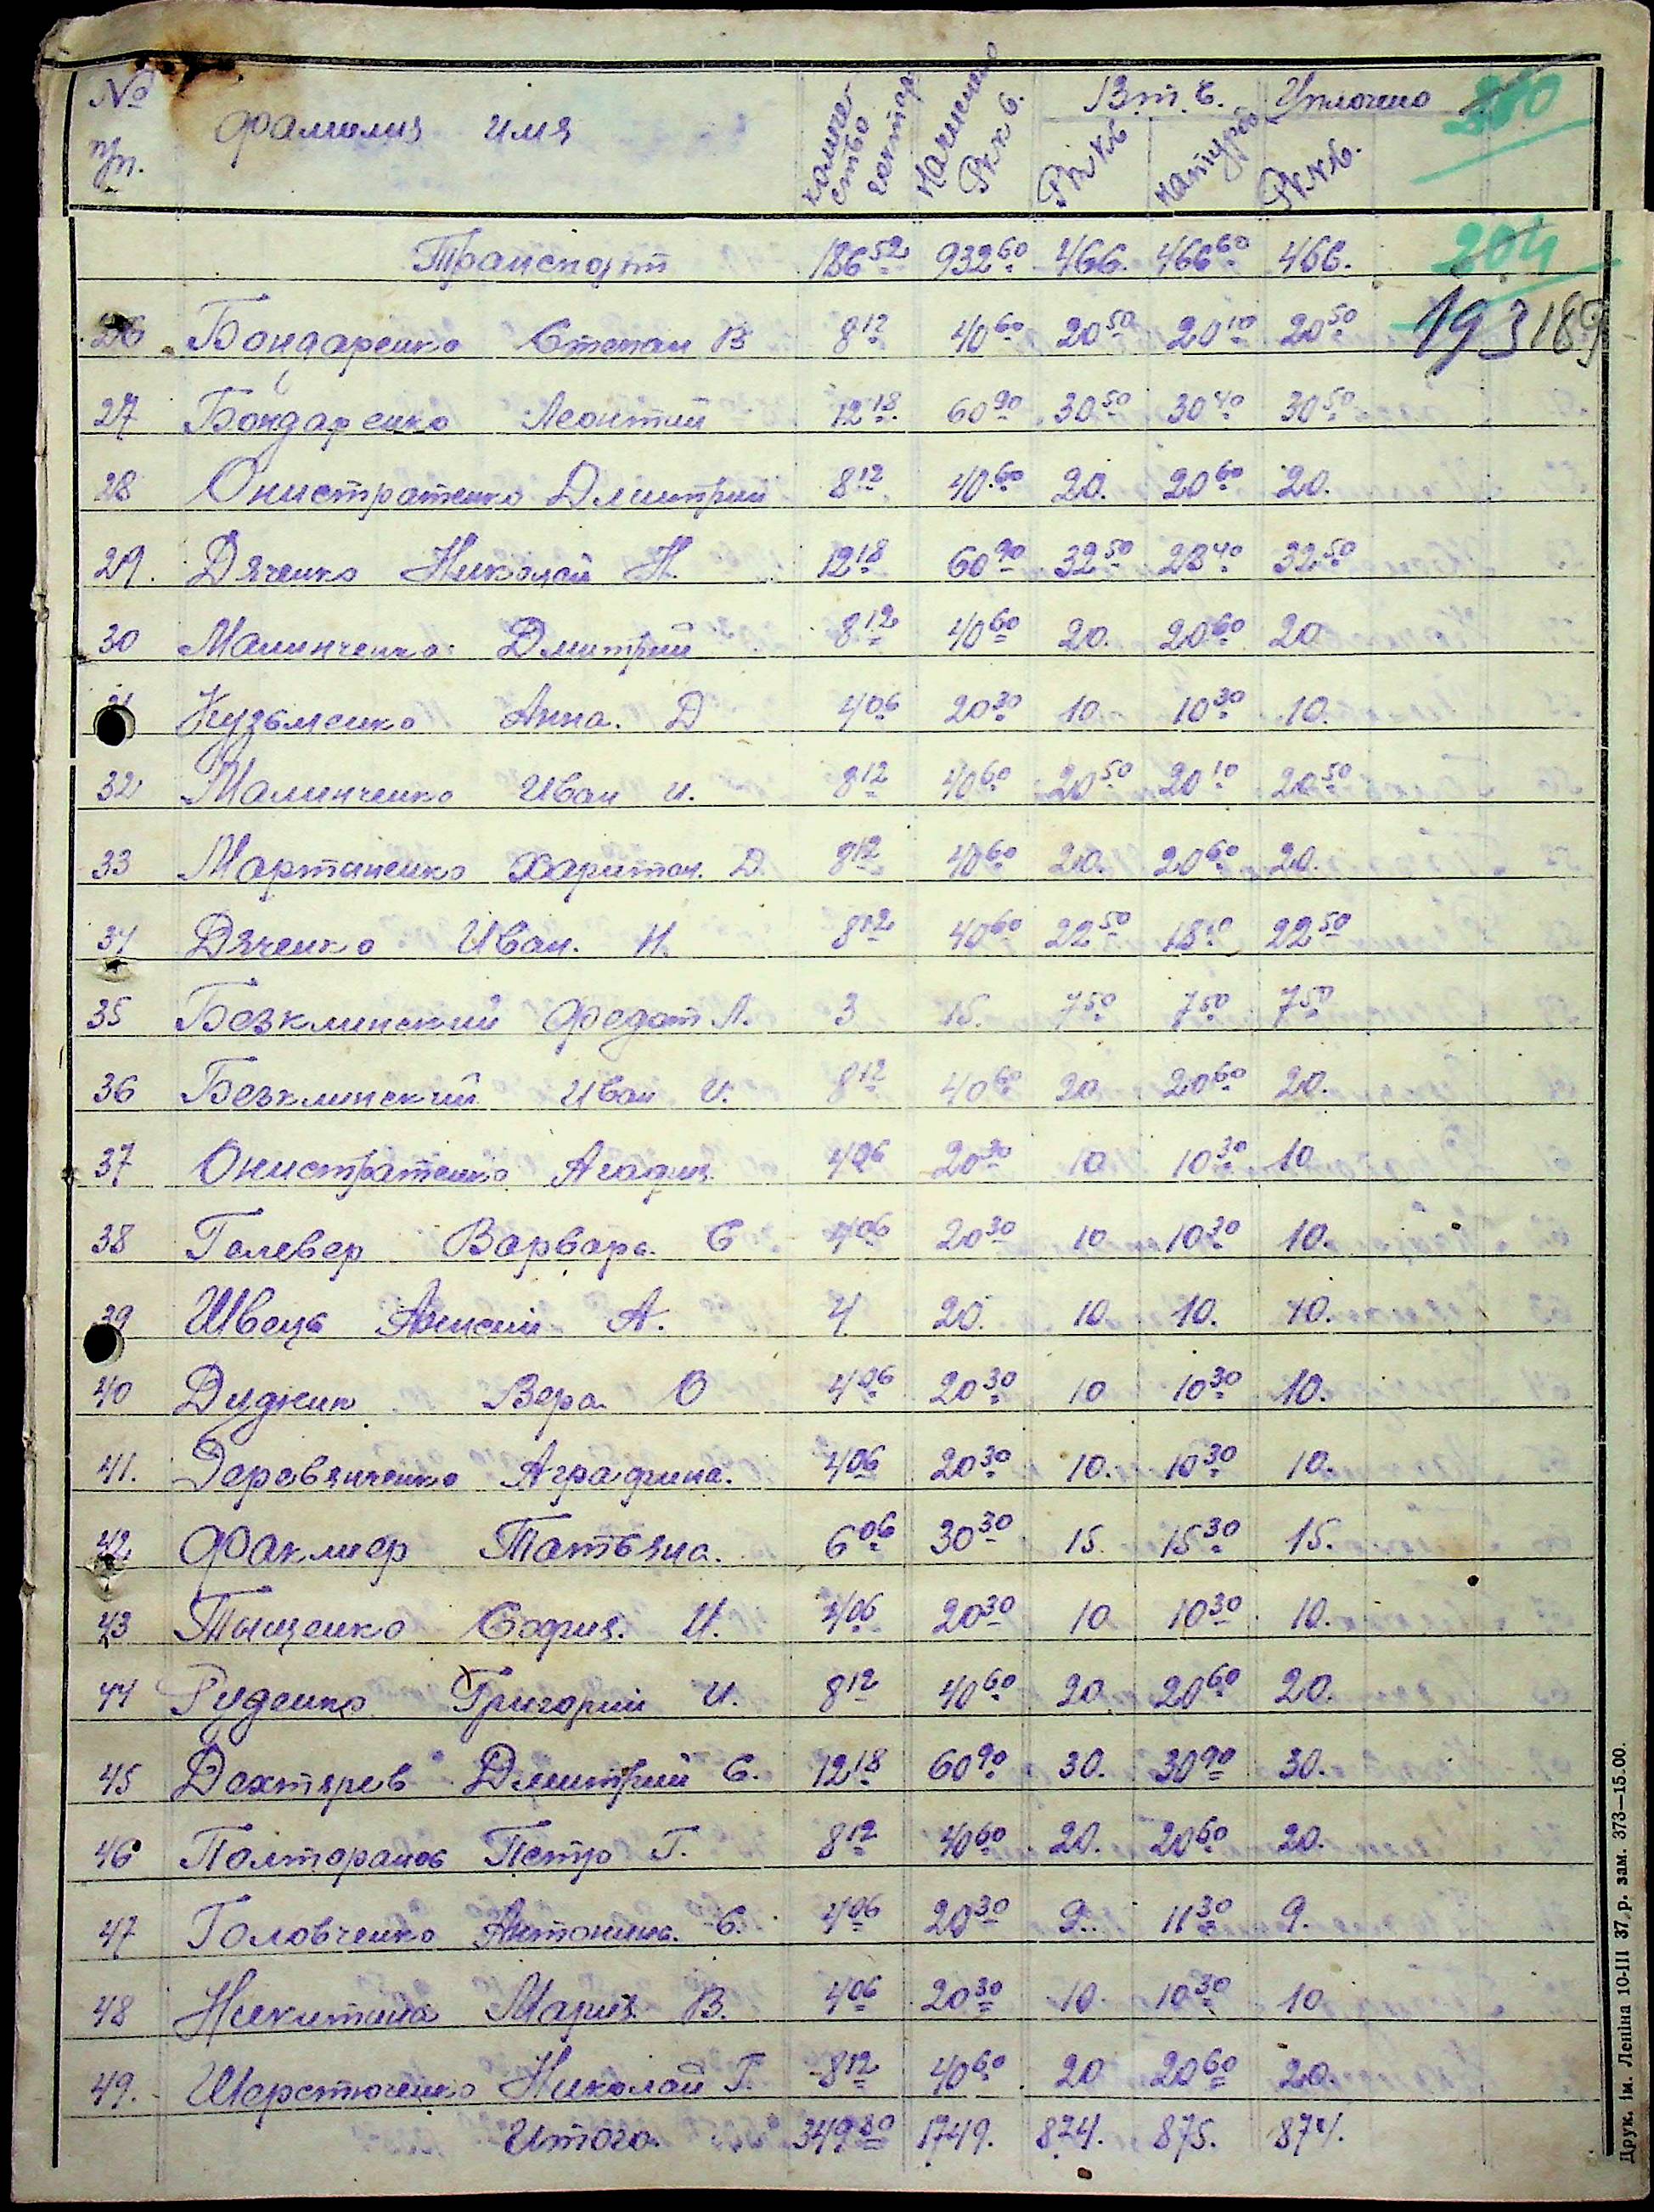 № п/п. Фамилия имя количество гектар Начислено Рк к б. В т. ч. Уплочено 380
Рк кб натуро Рк кб.
Транспорт 186 52 932 60 466. 466 60 466. 204
26 Бондаренко Степан В 8 12 40 60 20 50 20 10 20 50 193 189
27 Бондаренко Леонтий 12 18 60 90 30 50 30 40 30 50
28 Онистратенко Дмитрий 8 12 40 60 20. 20 60 20.
29. Дяченко Николай Н. 12 18 60 90 32 50 28 40 32 50
30 Малинченко Дмитрий 8 12 40 60 20. 20 60 20
Кузьменко Анна. Д 4 06 20 30 10 10 30 10.
32 Малинченко Иван И. 8 12 40 60 20 50 20 10 20 50
33 Мартыненко Харитон. Д. 8 12 40 60 20. 20 60 20.
34 Дяченко Иван. Н. 8 12 40 60 22 50 18 10 22 50
35 Безклинский Федот Л. 3 15. 7 50 7 50 7 50
36 Безклинский Иван И. 8 12 40 60 20 20 60 20.
37 Онистратенко Агафия 4 06 20 30 10 10 30 10
38 Гелевер Варвара Е 4 06 20 30 10 10 30 10.
39 Швець Алексий А. 4 20. 10. 10. 10.
40 Дудник Вера О 4 06 20 30 10 10 30 10.
41. Деревянченко Аграфина. 4 06 20 30 10. 10 30 10.
42 Факлиер Татьяна. 6 06 30 30 15. 15 30 15.
43 Тыщенко София. И. 4 06 20 30 10 10 30 10.
44 Руденко Григорий И. 8 12 40 60 20. 20 60 20.
45 Дехтярев Дмитрий С. 12 18 60 90 30. 30 90 30.
46 Полторанов Петро Г. 8 12 40 60 20. 20 60 20.
47 Головченко Антонина. С. 4 06 20 30 9. 11 30 9.
48 Никитина Мария В. 4 06 20 30 10. 10 30 10
49. Шерстюченко Николай Г. 8 12 40 60 20 20 60 20.
Итого. 349 80 1749. 874. 875. 874.
Друк. ім. Леніна 10-III 37 р. зам. 373—15.00.